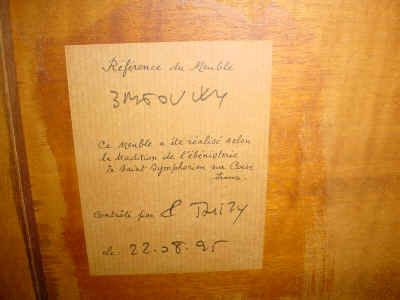 Référence du Meuble
Ce Meuble a été réalisé selon
la tradition de l'ébénisterie
à Saint Symphorien sur Coise
France.
Contrôlé par
le: 22.08.95